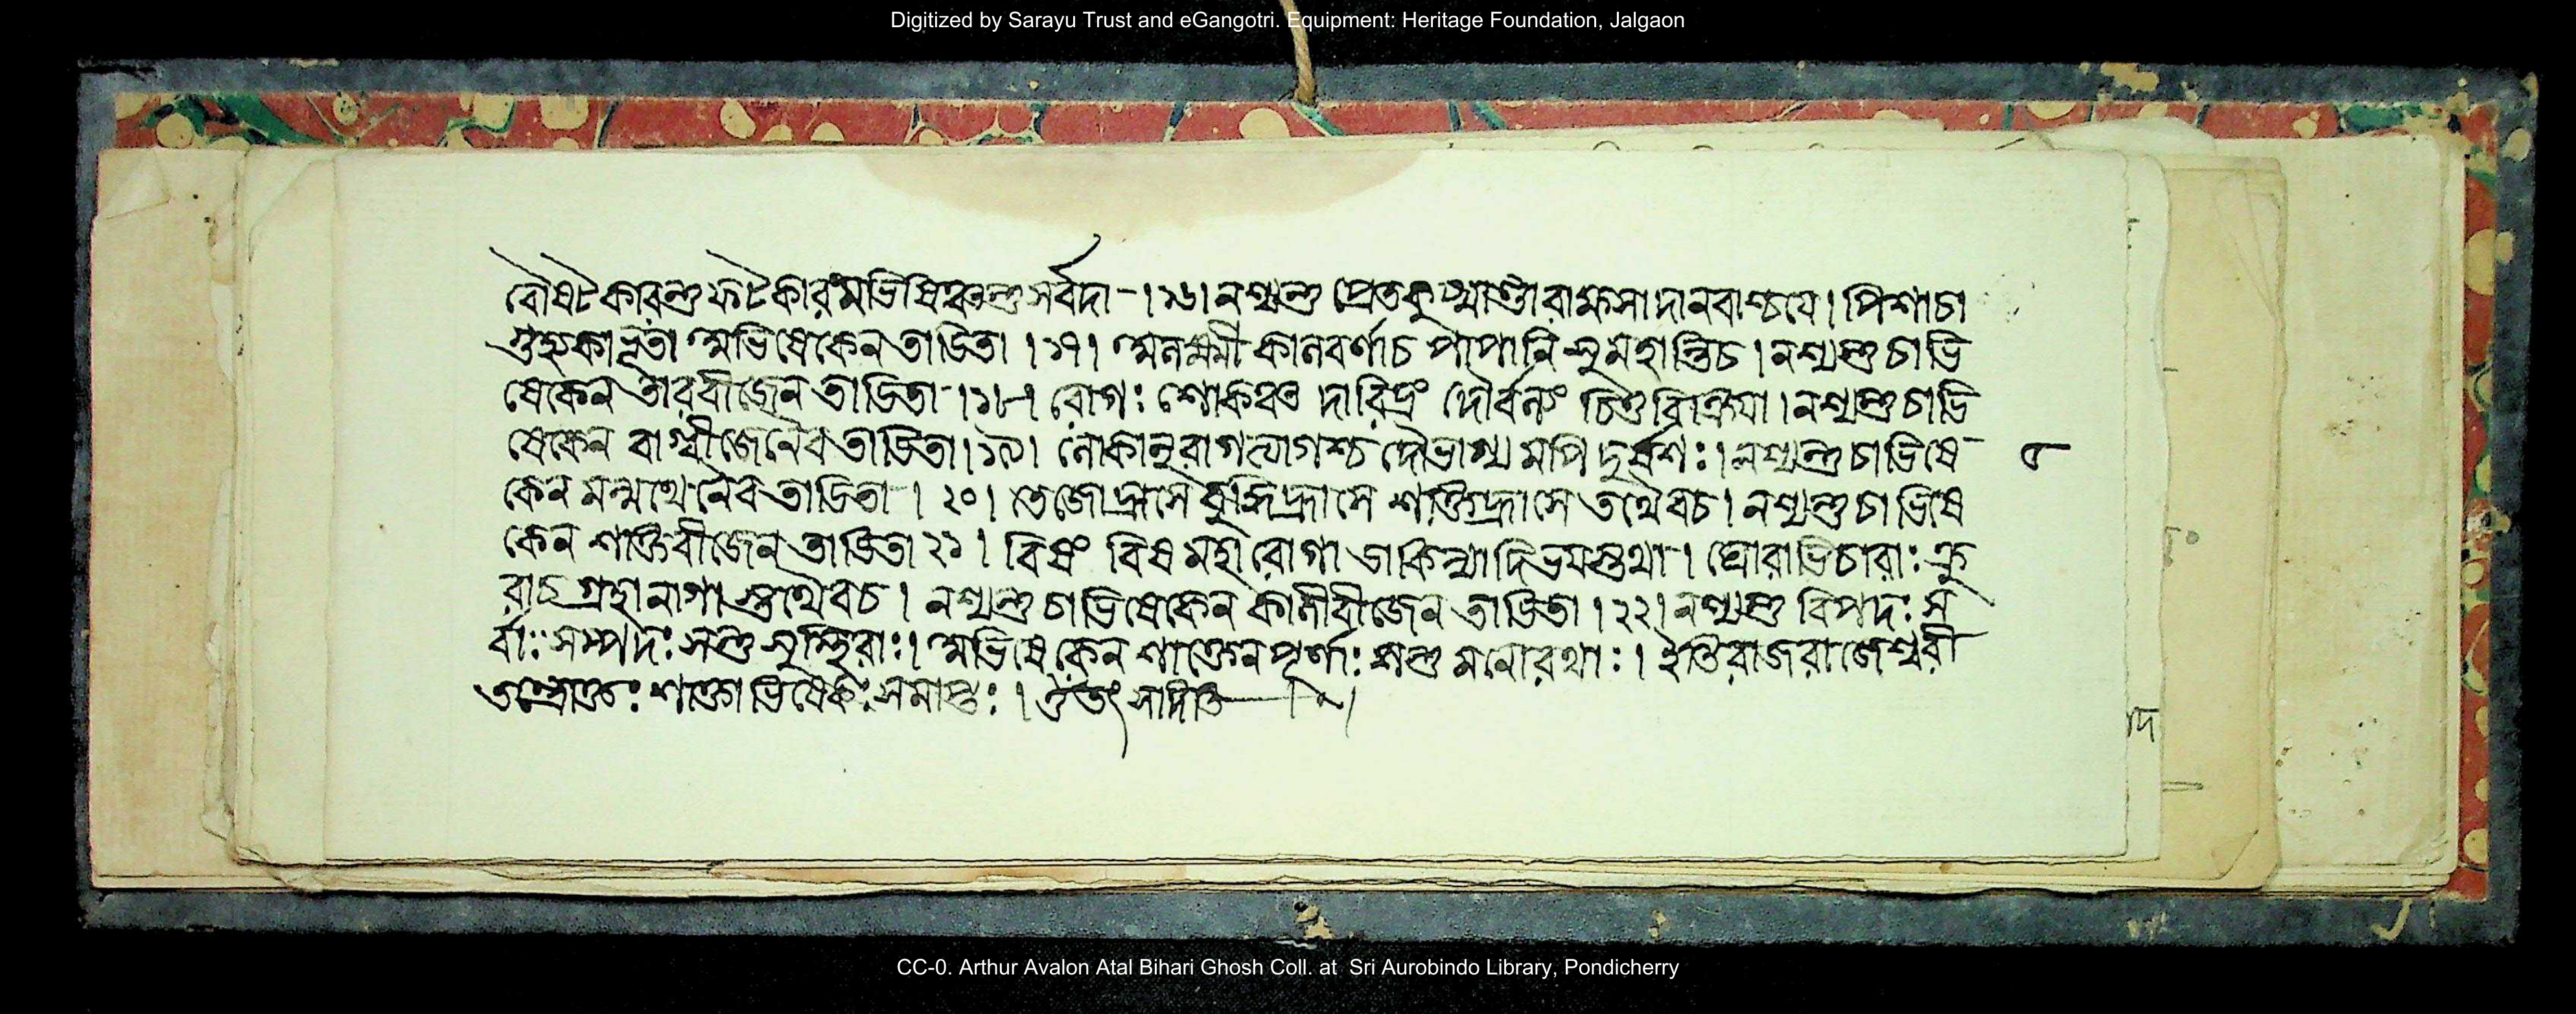 Digitized by Sarayu Trust and eGangotri. Equipment: Heritage Foundation, Jalgaon
বৌষট্কারন্তু ফট্কারমভিষিঞ্চন্তু সর্বদা । ১৬। নশ্যন্তু প্রেতকুষ্মাণ্ডা রাক্ষসা দানবাশ্চযে। পিশাচা
গুহ্যকা ভূতা অভিষেকেন তাডিতা । ১৭। অলক্ষ্মী কালবর্ণাচ পাপানি সুমহান্তিচ। নশ্যন্তু চাভি
ষেকেন তারবীজেন তাডিতা । ১৮। রোগঃ শোকঞ্চ দারিদ্রং দৌর্বল্যং নশ্যন্তু চাভি
ষেকেন বাগ্বীজেনৈব তাডিতা। ১৯। লোকানুরাগত্যাগশ্চ দৌর্ভাগ্যমপি নশ্যন্তু চাভিষে
কেন মন্মথেনৈব তাডিতা । ২০। তেজোহ্রাসে বুদ্ধিহ্রাসে শক্তিহ্রাসে তথৈবচ। নশ্যন্তু চাভিষে
কেন শক্তিবীজেন তাডিতা ২১। বিষং বিষমহারোগা ডাকিন্যাদিভয়ন্তথা । ঘোরাভিচারাঃ ক্রু
রাচ গ্রহা নাগাস্তথৈবচ। নশ্যন্তু চাভিষেকেন কালীবীজেন তাডিতা । ২২। নশ্যন্তু বিপদঃ স
র্বাঃ সম্পদঃ সন্তু সুস্থিরাঃ। অভিষেকেন শাক্তেন পূর্ণাঃ সন্তু মনোরথাঃ । ইতি রাজরাজেশ্বরী
তন্ত্রোক্তঃ শাক্তাভিষেকঃ সমাপ্তঃ । ওঁ তৎ
৮
CC-0. Arthur Avalon Atal Bihari Ghosh Coll. at Sri Aurobindo Library, Pondicherry